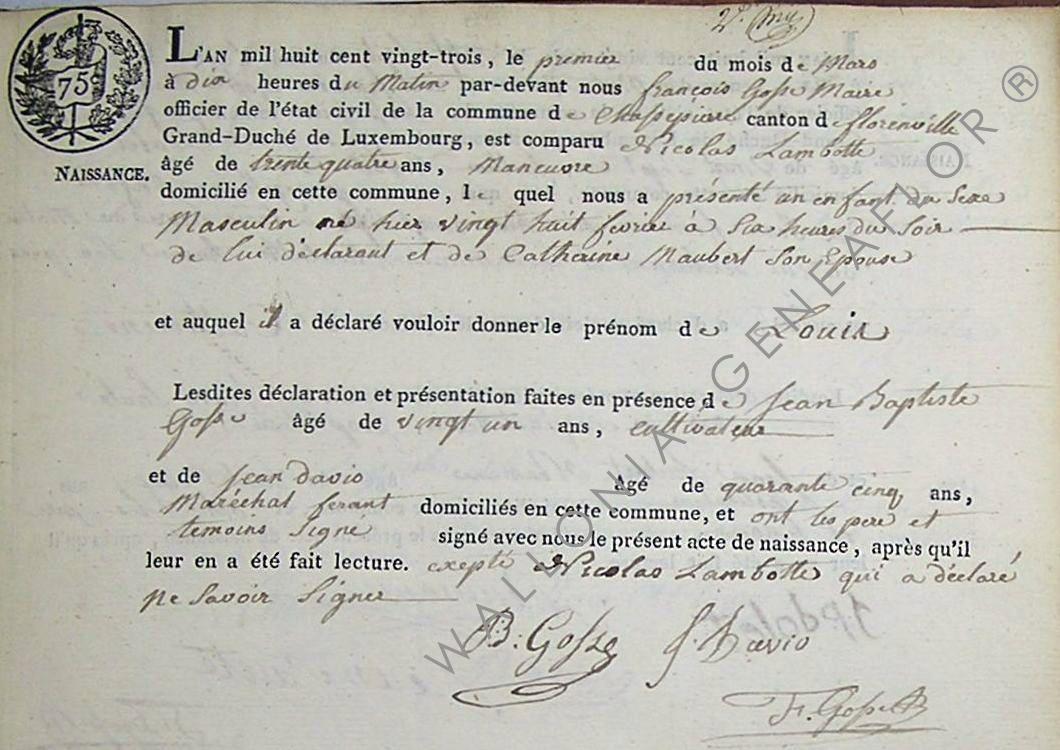 75
NAISSANCE.
L'AN mil huit cent vingt-trois, le premier du mois de Mars
à dix heures du Matin par-devant nous françois Gosse Maire
officier de l'état civil de la commune de Chassepierre canton d florenville
Grand-Duché de Luxembourg, est comparu Nicolas Lambotte
âgé de trente quatre ans, Maneuvre
domicilié en cette commune, le quel nous a présenté un enfant du Sexe
Masculin né hier vingt huit fevrier à Six heures du Soir
de lui déclarant et de Catherine Maubert Son Epouse
et auquel il a déclaré vouloir donner le prénom de Louis
Lesdites déclaration et présentation faites en présence de Jean Baptiste
Gosse âgé de vingt un ans, cultivateur
et de Jean Davio âgé de quarante cinq ans,
Maréchal ferant domiciliés en cette commune, et ont les pere et
temoins Signé signé avec nous le présent acte de naissance, après qu'il
leur en a été fait lecture. exepté Nicolas Lambotte qui a déclaré
ne Savoir Signer
B: Gosse J. Davio
F. Gosse
WALLONIA GENEAFLOR ®